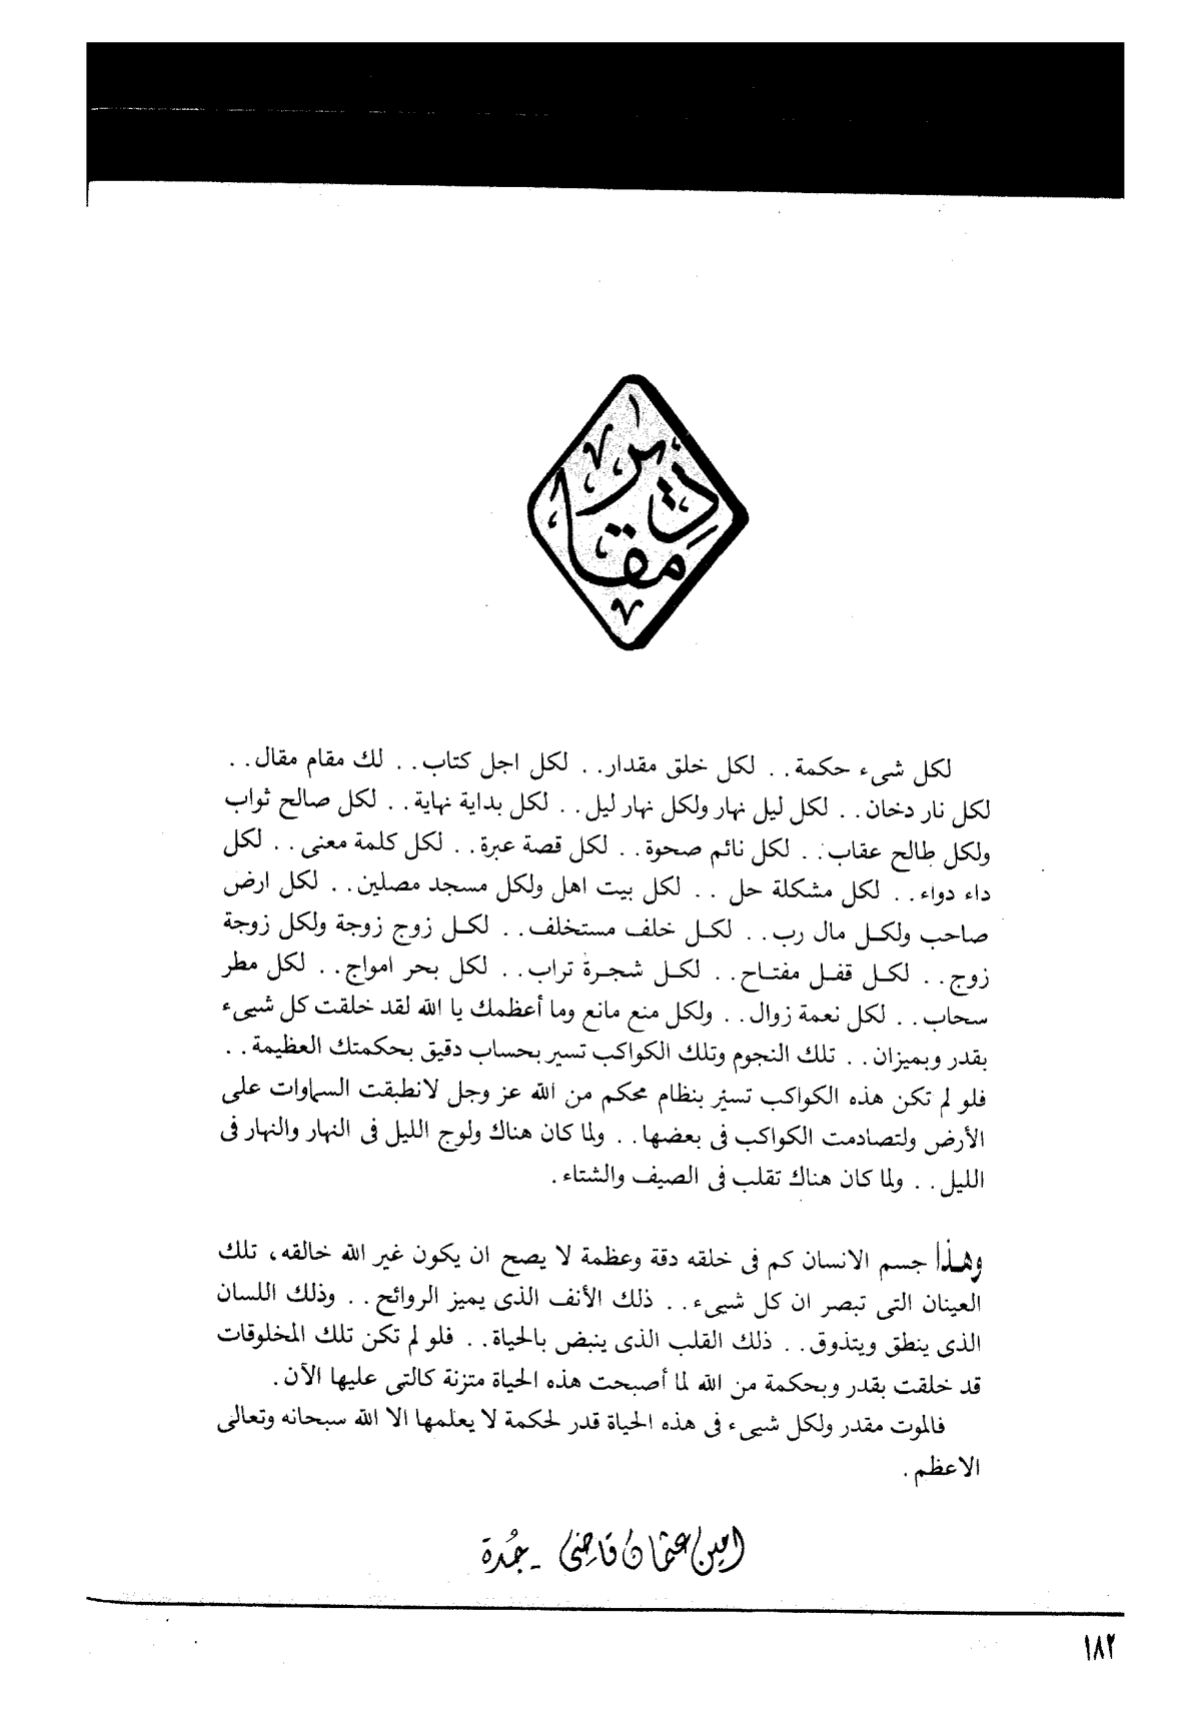 مقادير
لكل شىء حكمة . . لكل خلق مقدار . . لكل اجل كتاب . . لك مقام مقال . .
لكل نار دخان . . لكل ليل نهار ولكل نهار ليل . . لكل بداية نهاية . . لكل صالح ثواب
ولكل طالح عقاب . . لكل نائم صحوة . . لكل قصة عبرة . . لكل كلمة معنى . . لكل
داء دواء . . لكل مشكلة حل . . لكل بيت اهل ولكل مسجد مصلين . . لكل ارض
صاحب ولكل مال رب . . لكل خلف مستخلف . . لكل زوج زوجة ولكل زوجة
زوج . . لكل قفل مفتاح . . لكل شجرة تراب . . لكل بحر امواج . . لكل مطر
سحاب . . لكل نعمة زوال . . ولكل منع مانع وما أعظمك يا الله لقد خلقت كل شيىء
بقدر وبميزان . . تلك النجوم وتلك الكواكب تسير بحساب دقيق بحكمتك العظيمة . .
فلو لم تكن هذه الكواكب تسير بنظام محكم من الله عز وجل لانطبقت السماوات على
الأرض ولتصادمت الكواكب فى بعضها . . ولما كان هناك ولوج الليل فى النهار والنهار فى
الليل . . ولما كان هناك تقلب فى الصيف والشتاء .
وهذا جسم الانسان كم فى خلقه دقة وعظمة لا يصح ان يكون غير الله خالقه، تلك
العينان التى تبصر ان كل شيىء . . ذلك الأنف الذى يميز الروائح . . وذلك اللسان
الذى ينطق ويتذوق . . ذلك القلب الذى ينبض بالحياة . . فلو لم تكن تلك المخلوقات
قد خلقت بقدر وبحكمة من الله لما أصبحت هذه الحياة متزنة كالتى عليها الآن .
فالموت مقدر ولكل شيىء فى هذه الحياة قدر لحكمة لا يعلمها الا الله سبحانه وتعالى
الاعظم .
امين عثمان قاضى - جُدة
١٨٢